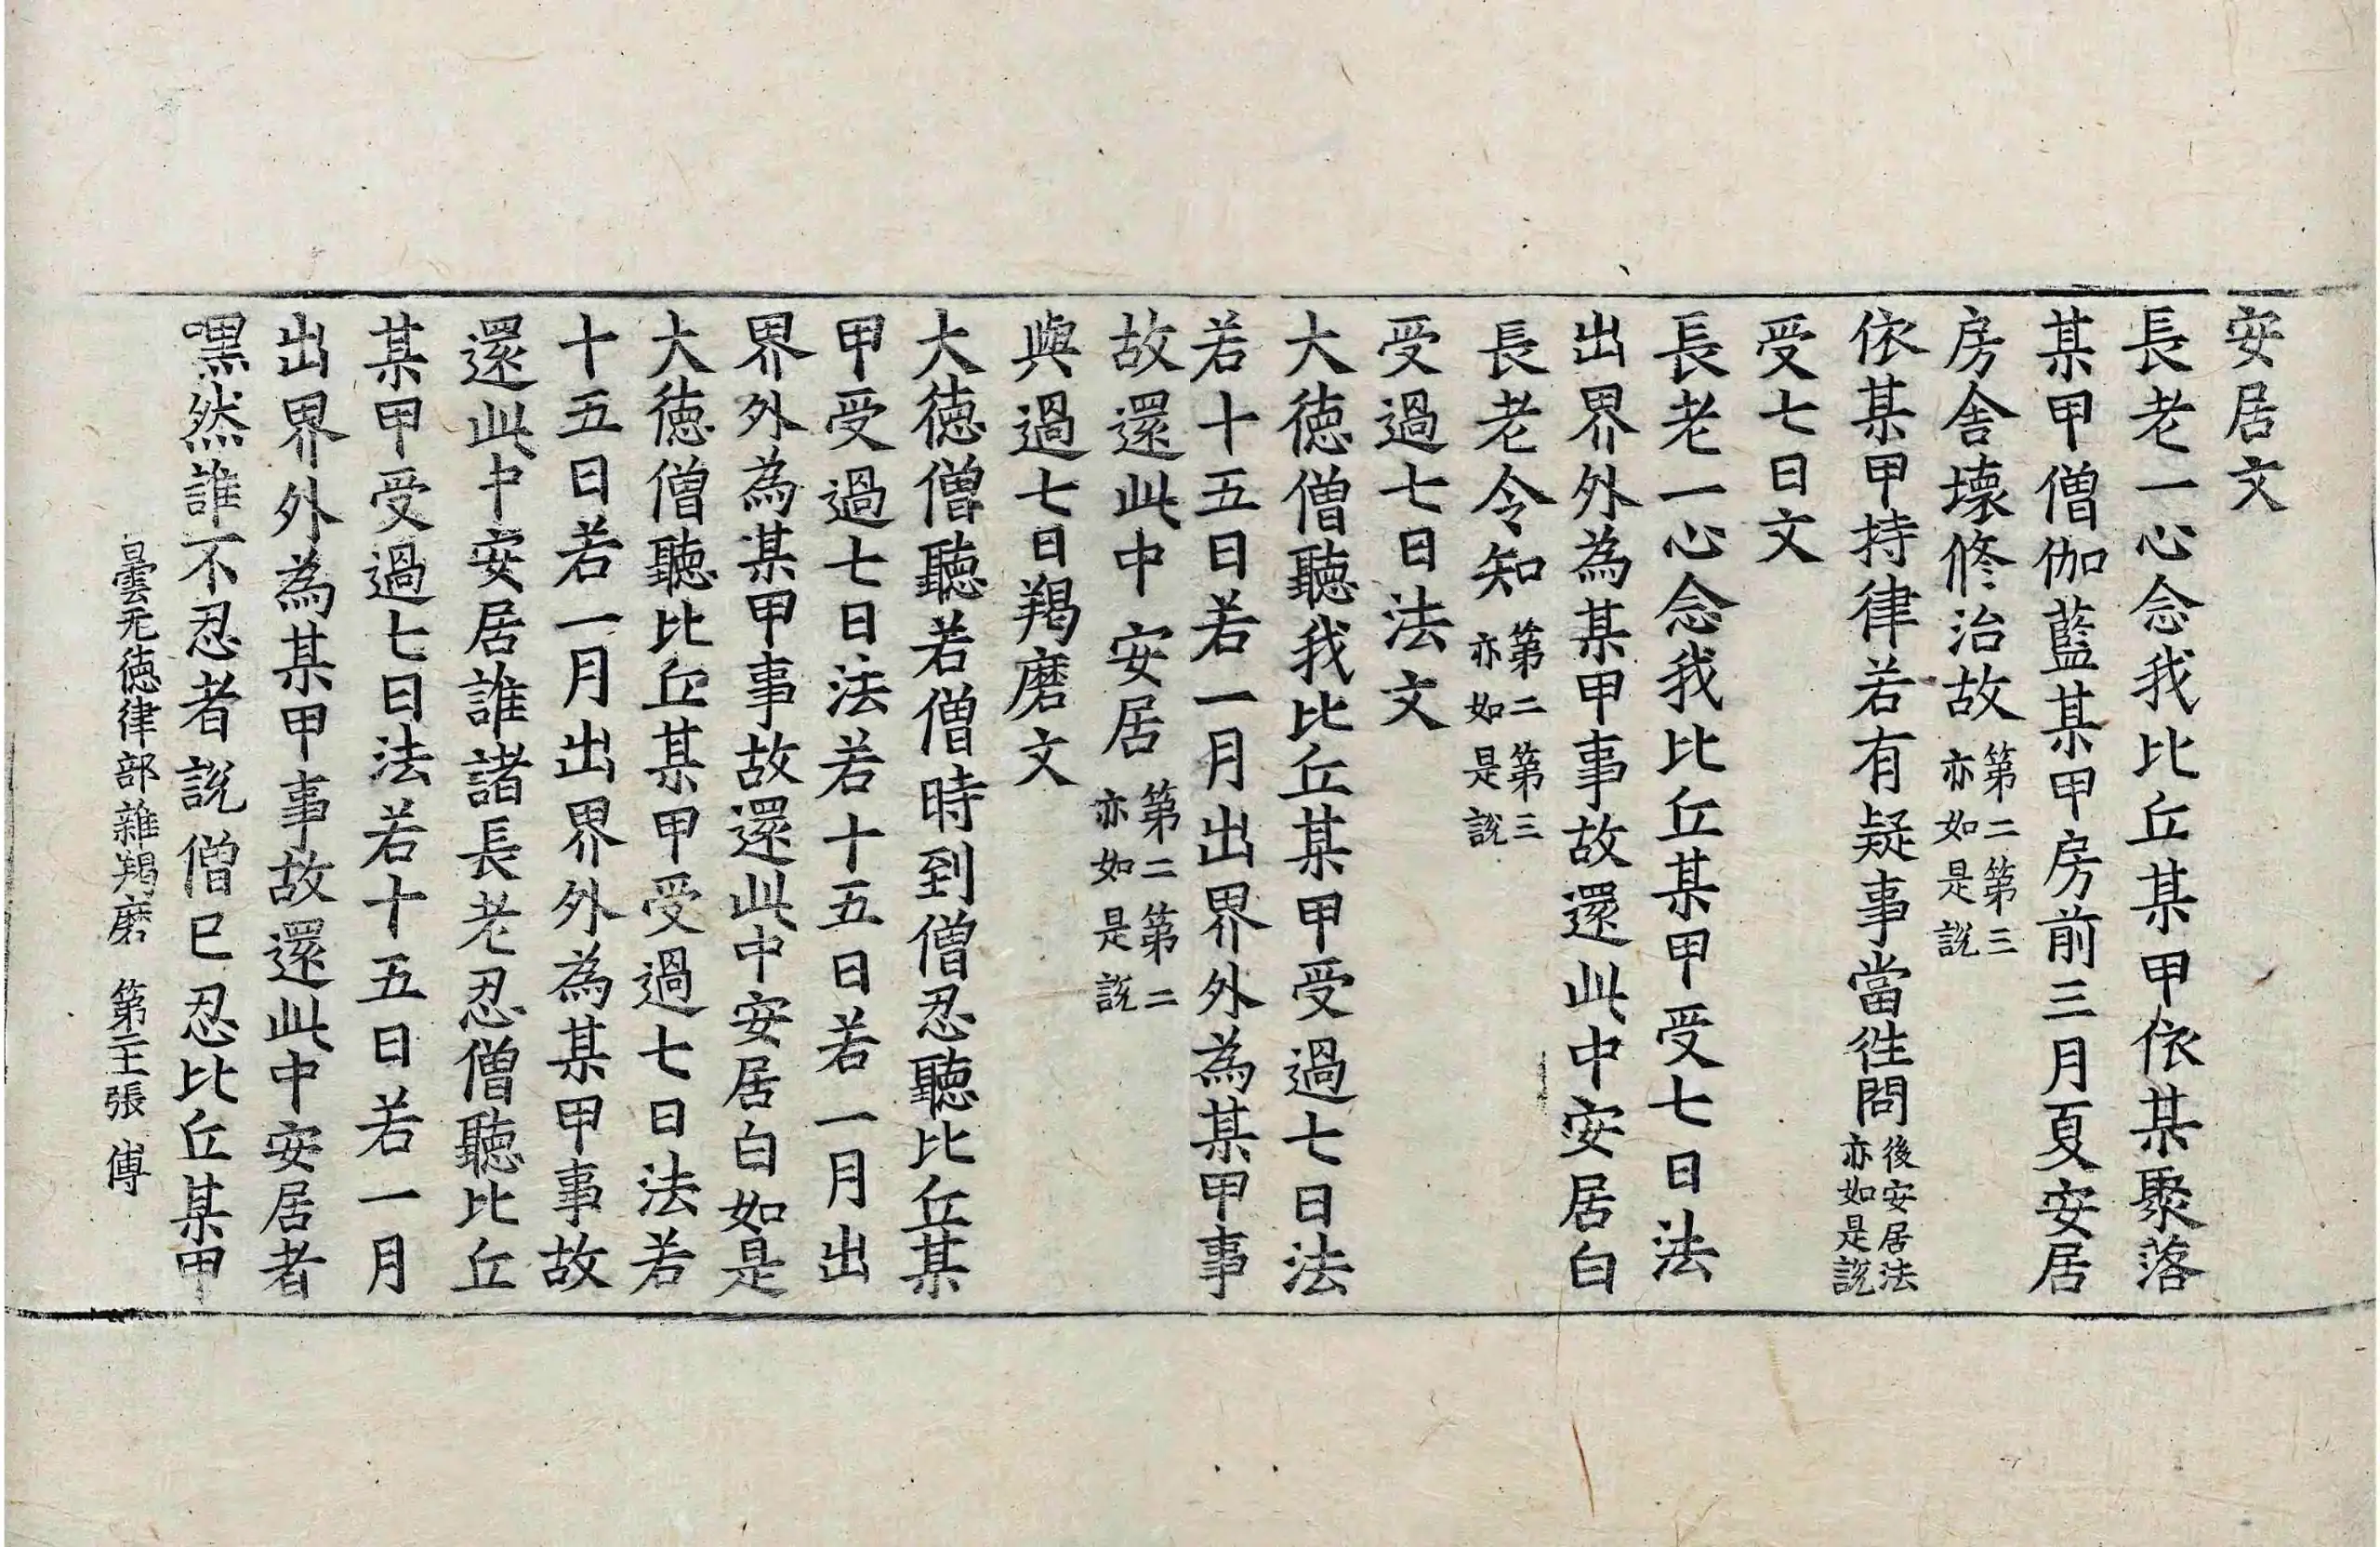 安居文
長老一心念我比丘某甲依某聚落
某甲僧伽藍某甲房前三月夏安居
房舍壞修治故第二第三亦如是説
依某甲持律若有疑事當徃問後安居法亦如是説
受七日文
長老一心念我比丘某甲受七日法
出界外為某甲事故還此中安居白
長老令知第二第三亦如是説
受過七日法文
大徳僧聽我比丘某甲受過七日法
若十五日若一月出界外為某甲事
故還此中安居第二第二亦如是説
與過七日羯磨文
大徳僧聽若僧時到僧忍聽比丘某
甲受過七日法若十五日若一月出
界外為某甲事故還此中安居白如是
大徳僧聽比丘某甲受過七日法若
十五日若一月出界外為某甲事故
還此中安居誰諸長老忍僧聽比丘
某甲受過七日法若十五日若一月
出界外為某甲事故還此中安居者
嘿然誰不忍者説僧巳忍比丘某甲
曇无徳律部雜羯磨 第二 張 傅